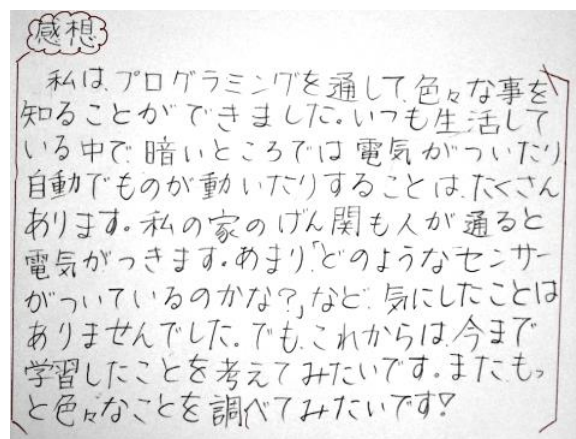 感想
私は、プログラミングを通して、色々な事を
知ることができました。いつも生活して
いる中で、暗いところでは電気がついたり
自動でものが動いたりすることは、たくさん
あります。私の家のげん関も人が通ると
電気がつきます。あまり、「どのようなセンサー
がついているのかな?」など、気にしたことは
ありませんでした。でも、これからは、今まで
学習したことを考えてみたいです。また、もっ
と色々なことを調べてみたいです!